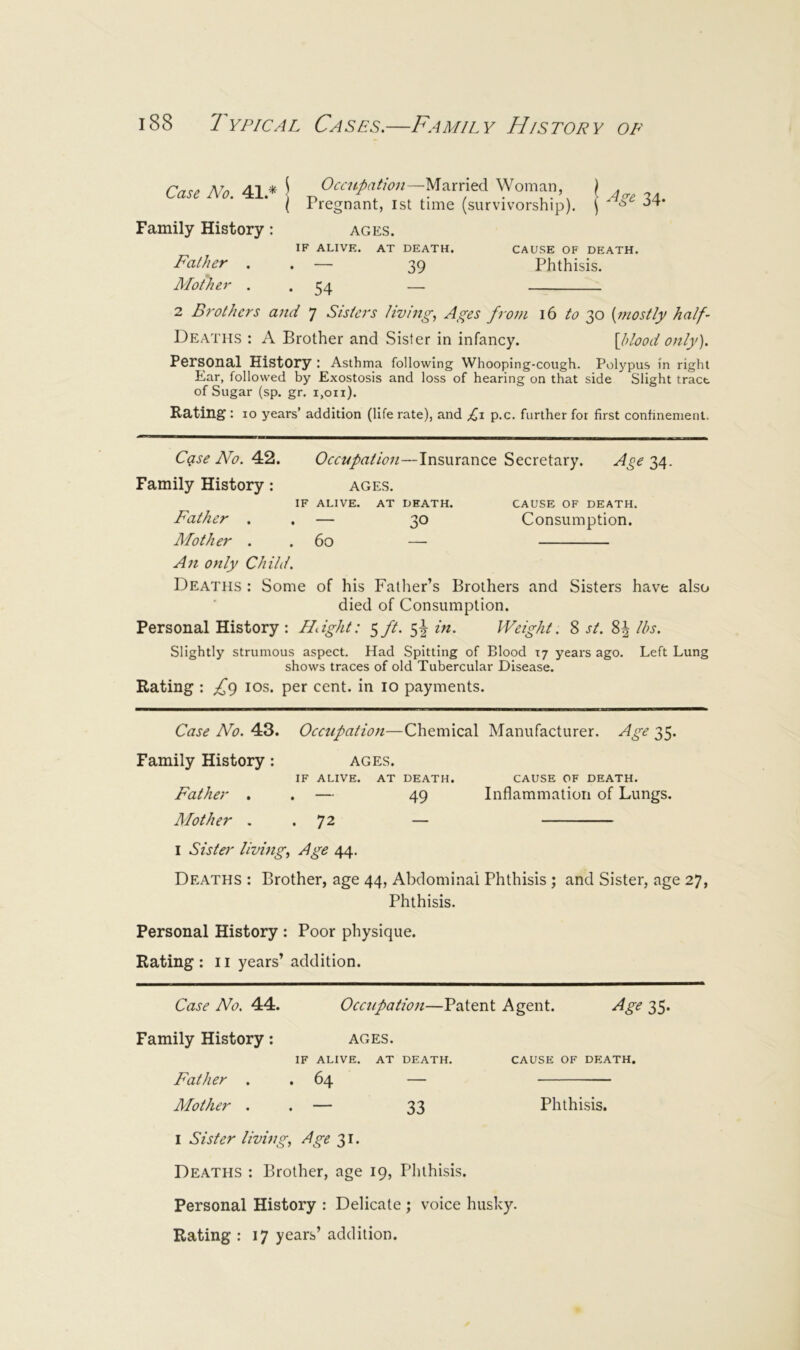 188 TYPICAL CASES.—FAMILY HISTORY OF
Case No. 41.* { Occupation—Married Woman, } Age 34.
Pregnant, 1st time (survivorship).
Family History : AGES.
IF ALIVE. AT DEATH. CAUSE OF DEATH.
Father . . — 39 Phthisis.
Mother . . 54 — ———
2 Brothers and 7 Sisters living, Ages from 16 to 30 (mostly half-
DEATHS : A Brother and Sister in infancy. [blood only).
Personal History : Asthma following Whooping-cough. Polypus in right
Ear, followed by Exostosis and loss of hearing on that side Slight trace
of Sugar (sp. gr. 1,011).
Rating : 10 years' addition (life rate), and £1 p.c. further for first confinement.
Case No. 42. Occupation—Insurance Secretary. Age 34.
Family History : AGES.
IF ALIVE. AT DEATH. CAUSE OF DEATH.
Father . . — 30 Consumption.
Mother . . 60 — ———
An only Child.
DEATHS : Some of his Father's Brothers and Sisters have also
died of Consumption.
Personal History : Height: 5 ft. 5½ in. Weight. 8 st. 8½ lbs.
Slightly strumous aspect. Had Spitting of Blood 17 years ago. Left Lung
shows traces of old Tubercular Disease.
Rating : £9 10s. per cent. in 10 payments.
Case No. 43. Occupation—Chemical Manufacturer. Age 35.
Family History : AGES.
IF ALIVE. AT DEATH. CAUSE OF DEATH.
Father . . — 49 Inflammation of Lungs.
Mother . . 72 — ———
1 Sister living, Age 44.
DEATHS : Brother, age 44, Abdominal Phthisis ; and Sister, age 27,
Phthisis.
Personal History : Poor physique.
Rating : 11 years' addition.
Case No. 44. Occupation—Patent Agent. Age 35.
Family History : AGES.
IF ALIVE. AT DEATH. CAUSE OF DEATH.
Father . . 64 — ———
Mother . . — 33 Phthisis.
1 Sister living, Age 31.
DEATHS : Brother, age 19, Phthisis.
Personal History : Delicate ; voice husky.
Rating : 17 years' addition.